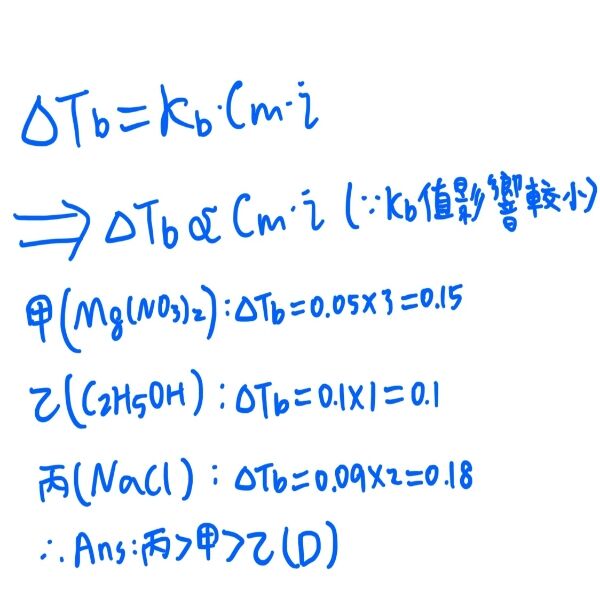 ΔTb=Kb·Cm·i
⇒ΔTb∝Cm·i (∵Kb值影響較小)
甲(Mg(NO3)2):ΔTb=0.05×3=0.15
乙(C2H5OH):ΔTb=0.1×1=0.1
丙(NaCl):ΔTb=0.09×2=0.18
∴Ans:丙>甲>乙(D)